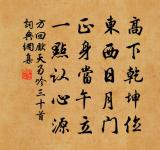 高下乾坤位
東西日月門
正身當午立
一點以心源
方回天易吟三十首
詞典網集